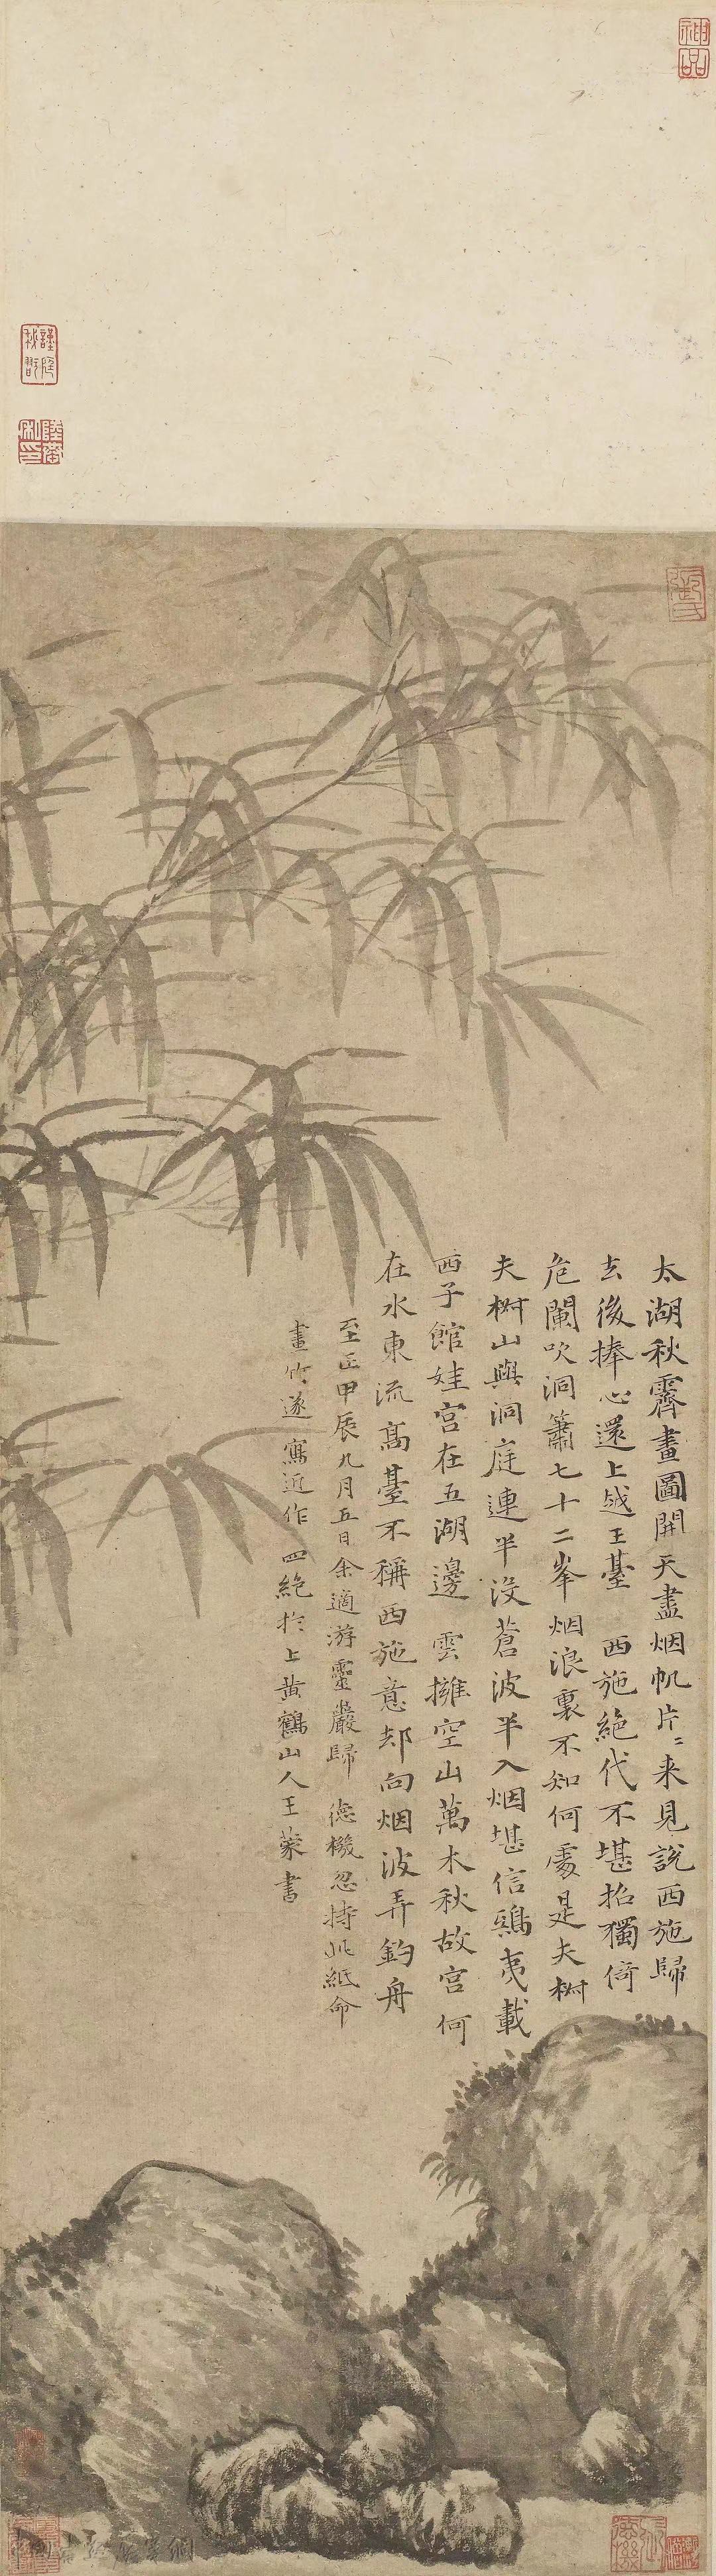 神品
謹庭秋翫
太湖秋霽畫圖開天盡烟帆片〻来見說西施歸
去後捧心還上越王臺　西施絕代不堪招獨倚
危闌吹洞簫七十二峯烟浪裏不知何處是夫椒
夫椒山與洞庭連半没蒼波半入烟堪信鴟夷載
西子館娃宮在五湖邊　雲擁空山萬木秋故宮何
在水東流高臺不稱西施意却向烟波弄釣舟
至正甲辰九月五日余適游靈巖歸　德機忽持此紙命
畫竹遂寫近作四絕於上黄鶴山人王蒙書